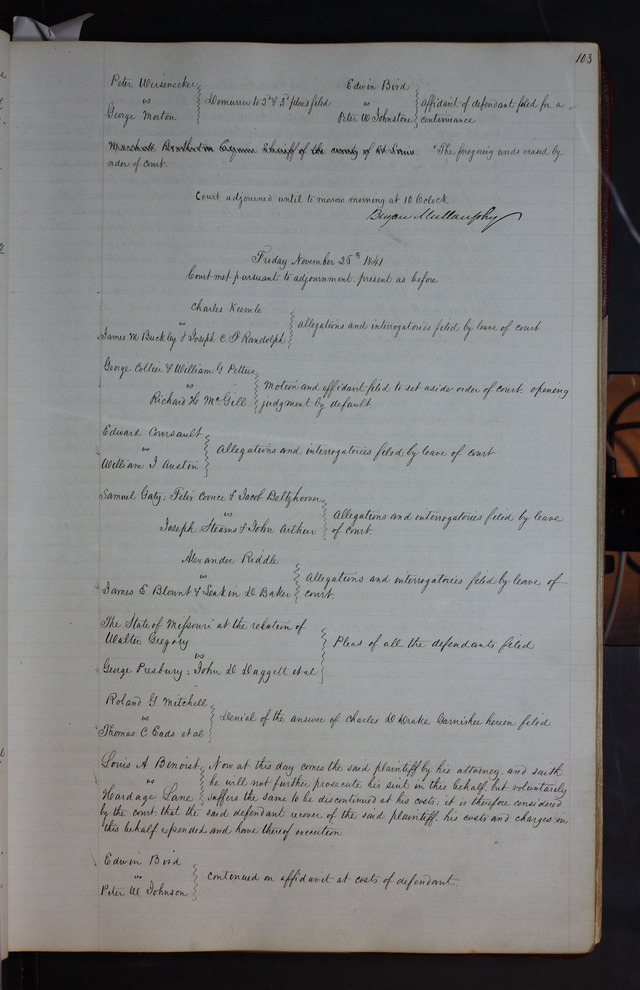 103
Peter Weisenecker
vs
George Morton
Demurrer to 2d & 3d pleas filed
Edwin Bird
vs
Peter W Johnstone
affidavit of defendant filed for a
continuance
Marshall Brotherton Sheriff of the county of St Louis "The foregoing words erased by
order of court.
Court adjourned until to morrow morning at 10 Oclock
Bryan Mullanphy
Friday November 26th 1841
Court met pursuant to adjournment. present as before
Charles Keemle
vs
James M Buckley & Joseph C F Randolph
allegations and interrogatories filed by leave of court
George Collier & William G Pettus
vs
Richard H McGill
Motion and affidavit filed to set aside order of court. opening
judgment by default
Edward Coursault
vs
William I Austin
Allegations and interrogatories filed by leave of court
Samuel Gaty: Felix Coonce & Jacob Beltzhoover
vs
Joseph Stearns & John Arthur
Allegations and interrogatories filed by leave
of court.
Alexander Riddle
vs
James E Blount & Jenkin D Baker
Allegations and interrogatories filed by leave of
court.
The State of Missouri at the relation of
Walter Gregory
vs
George Presbury: John D Daggett et al
Pleas of all the defendants filed
Roland G Mitchell
vs
Thomas C Eads et al
Denial of the answer of Charles D Drake Garnishee herein filed
Louis A Benoist
vs
Hardage Lane
Now at this day comes the said plaintiff by his attorney. and saith
he will not further prosecute his suit in this behalf. but voluntarily
suffers the same to be discontinued at his costs: it is therefore considered
by the court. that the said defendant recover of the said plaintiff. his costs and charges in
this behalf expended. and have thereof execution
Edwin Bird
vs
Peter W Johnson
continued on affidavit at costs of defendant.